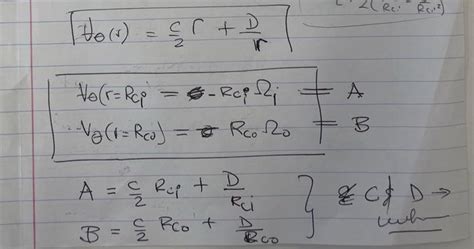 V_θ(r) = C/2 r + D/r
V_θ(r=R_ci) = - R_ci Ω_i = A
V_θ(r=R_co) = R_co Ω_o = B
A = C/2 R_ci + D/R_ci
B = C/2 R_co + D/R_co
C & D →